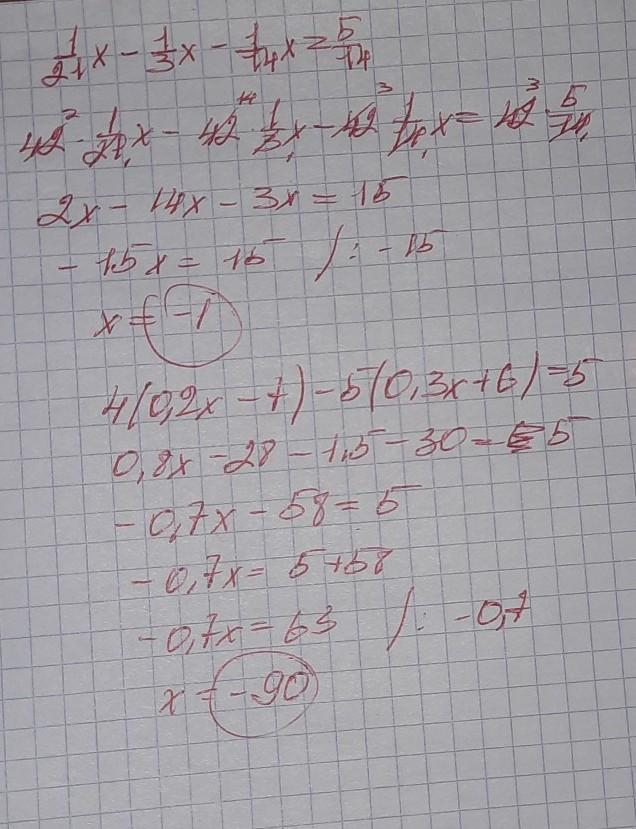 1/21 x - 1/3 x - 1/14 x = 5/14
42² · 1/21₁ x - 42¹⁴ · 1/3₁ x - 42³ · 1/14₁ x = 42³ · 5/14₁
2x - 14x - 3x = 15
- 15x = 15 / : -15
x = -1
4(0,2x - 7) - 5(0,3x + 6) = 5
0,8x - 28 - 1,5 - 30 = 5
- 0,7x - 58 = 5
- 0,7x = 5 + 58
- 0,7x = 63 / : -0,7
x = -90